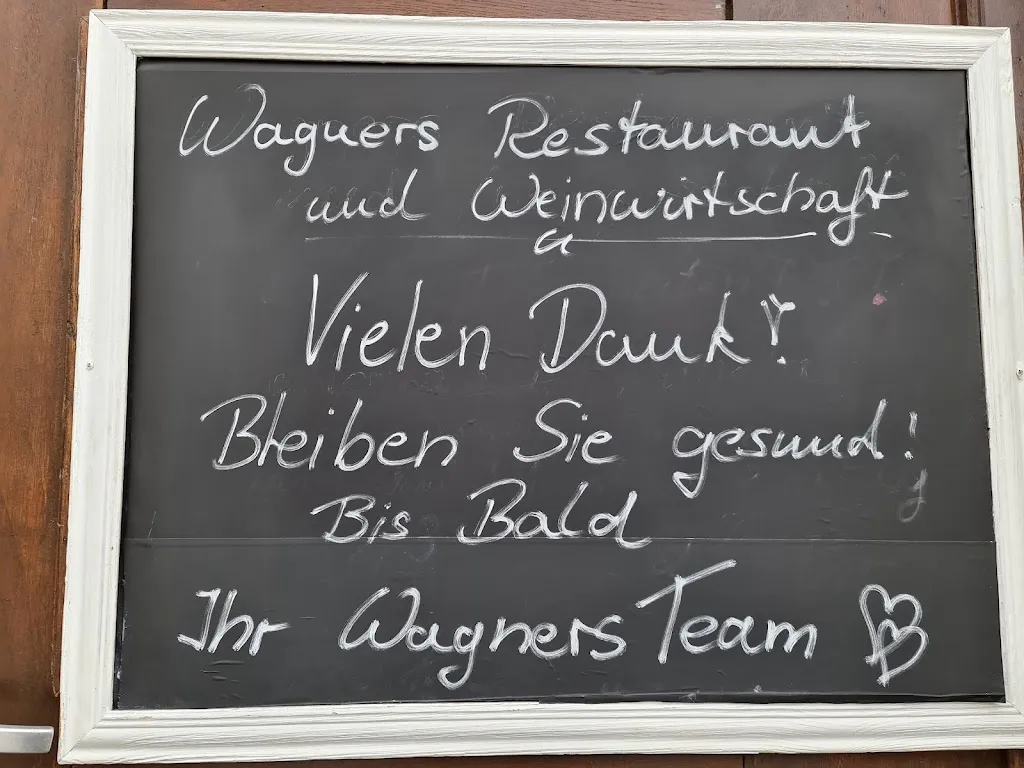 Wagners Restaurant
und Weinwirtschaft
Vielen Dank!
Bleiben Sie gesund!
Bis Bald
Ihr Wagners Team